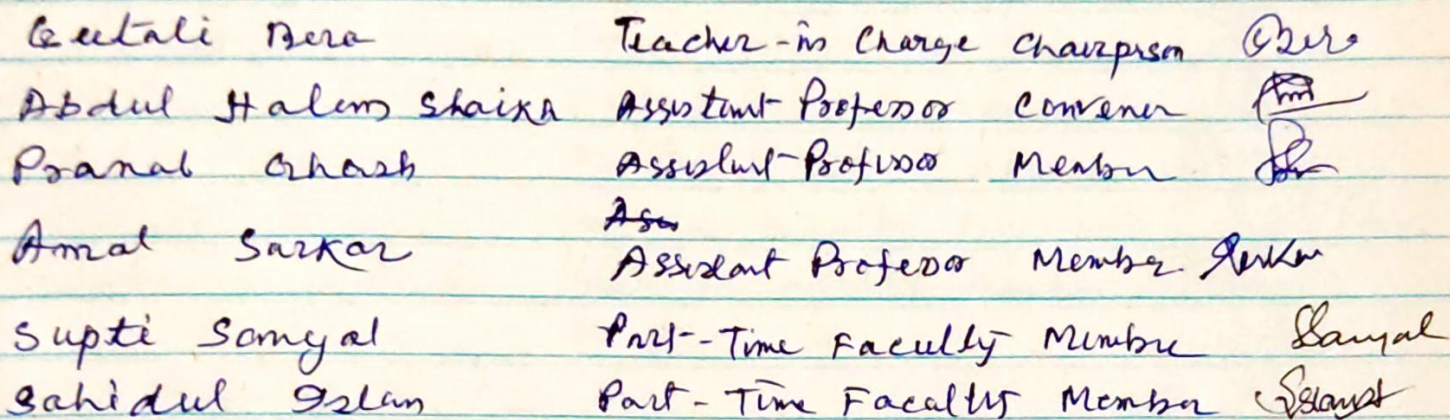 Geetali Bera Teacher-in Charge Chairprson Bera
Abdul Halim Shaikh Assistant Professor Convener
Pranab Ghosh Assistant Professor Member
Amal Sarkar Assistant Professor Member Sarkar
Supti Sanyal Part-Time Faculty Member Sanyal
Sahidul Islam Part-Time Faculty Member